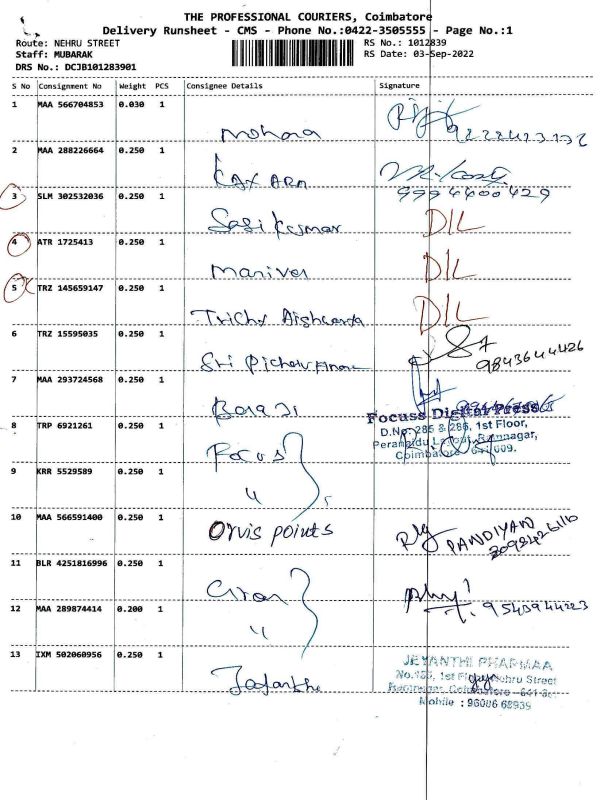 THE PROFESSIONAL COURIERS, Coimbatore
Delivery Runsheet - CMS - Phone No.:0422-3505555 - Page No.:1
Route: NEHRU STREET RS No.: 1012839
Staff: MUBARAK RS Date: 03-Sep-2022
DRS No.: DCJB101283901
S No Consignment No Weight PCS Consignee Details Signature
1 MAA 566704853 0.030 1
9222423132
2 MAA 288226664 0.250 1
9994400429
3 SLM 302532036 0.250 1
Sasikumar D/L
4 ATR 1725413 0.250 1
Manivel D/L
5 TRZ 145659147 0.250 1
Trichy D/L
6 TRZ 15595035 0.250 1
Sri 9843644426
7 MAA 293724568 0.250 1
Balaji
Focuss Digital Press
8 TRP 6921261 0.250 1
D.No: 285 & 286, 1st Floor,
Focus
Coimbatore - 641 009.
9 KRR 5529589 0.250 1
"
10 MAA 566591400 0.250 1
Orvis points PANDIYAN
11 BLR 4251816996 0.250 1
12 MAA 289874414 0.200 1
" 9543944223
13 IXM 502060956 0.250 1
JEYANTHI PHARMAA
Nehru Street
Mobile : 96006 68939